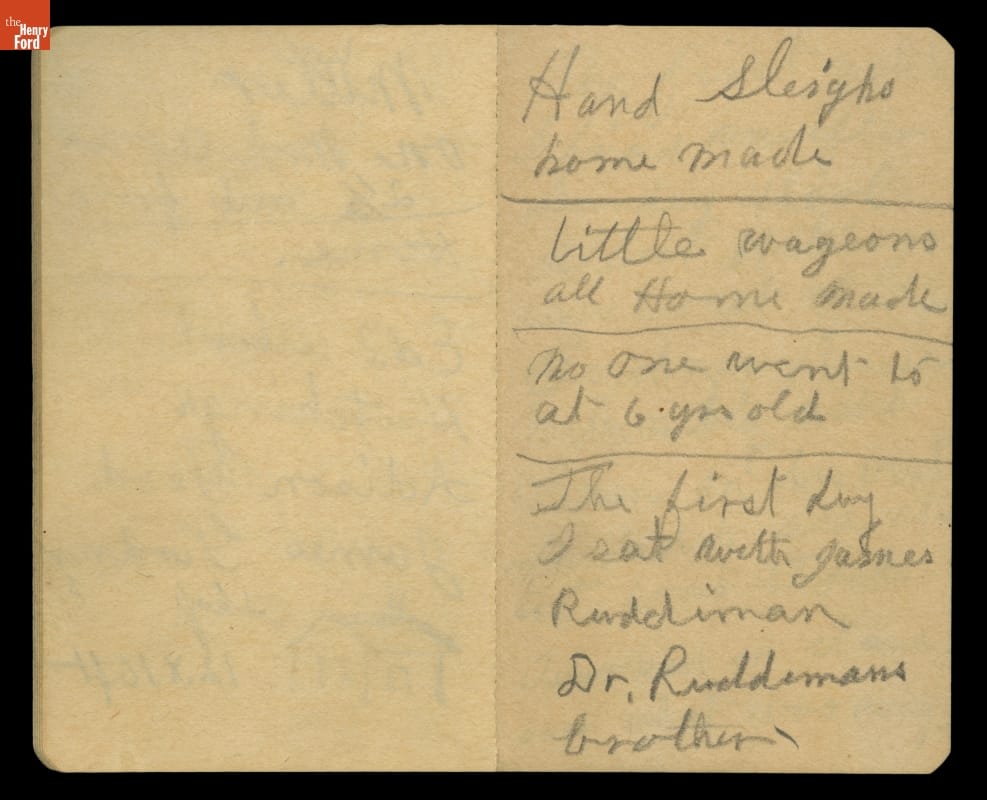 the
Henry
Ford
Hand Sleighs
home made
Little wageons
all Home made
no one went to
at 6 yrs old
The first day
I sat with James
Ruddiman
Dr. Ruddemans
brother